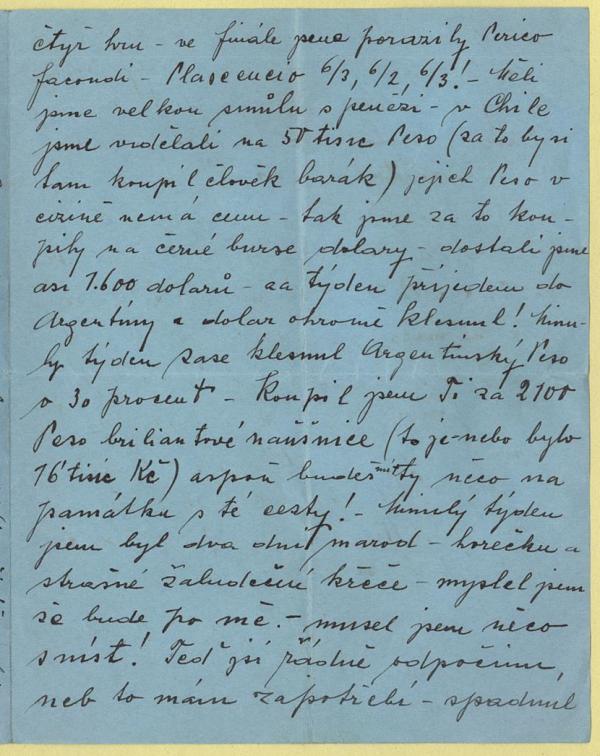 čtyř hru - ve finále jsme porazily Perico
Facondi - Plascencio 6/3, 6/2, 6/3! - Měli
jsme velkou smůlu s penězi - v Chile
jsme vydělali na 50 tisíc Peso (za to by si
tam koupil člověk barák) jejich Peso v
cizině nemá cenu - tak jsme za to kou-
pily na černé burse dolary - dostali jsme
asi 1.600 dolarů - za týden přijedem do
Argentíny a dolar ohromě klesnul! Minu-
lý týden zase klesnul Argentinský Peso
o 30 procent - Koupil jsem Ti za 2100
Peso briliantové naušnice (to je-nebo bylo
16 tisíc Kč) aspoň budeš mít ty něco na
památku s té cesty! - Minulý týden
jsem byl dva dni marod - horečku a
strašné žaludeční křeče - myslel jsem
že bude po mě. - musel jsem něco
sníst! Teď si řádně odpočinu,
neb to mám zapotřebí - spadnul